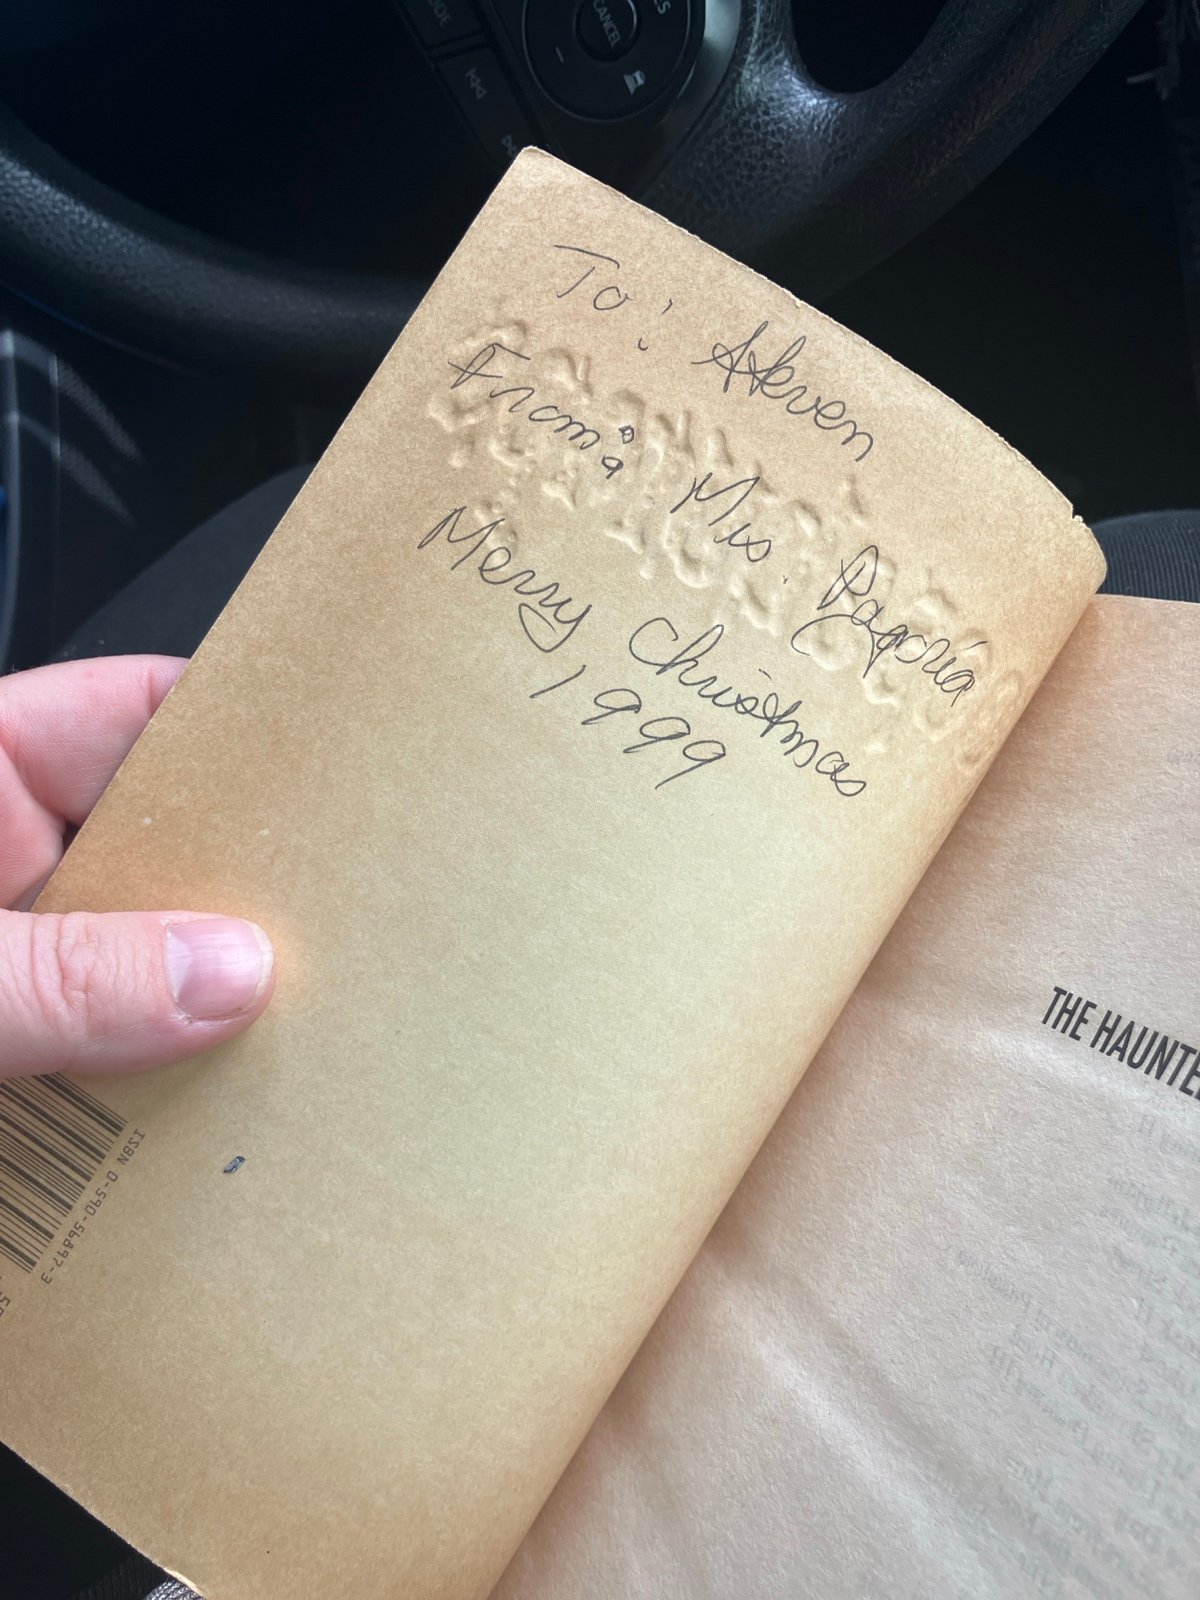 CANCEL
To: Steven
From: Mrs.
Merry Christmas
1999
THE HAUNTE
ISBN 0-590-56897-3